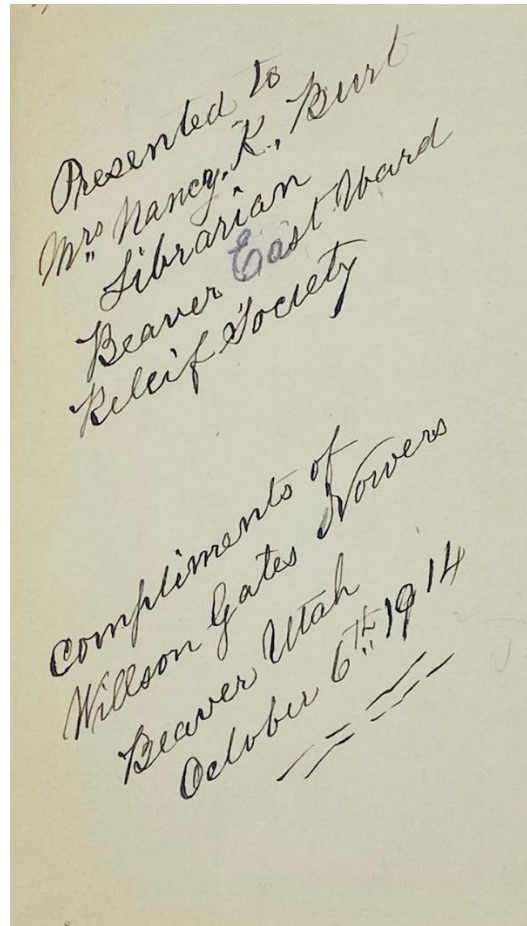 Presented to
Mrs Nancy. K. Burt
Librarian
Beaver East Ward
Releif Society
Compliments of
Willson Gates Nowers
Beaver Utah
October 6th 1914